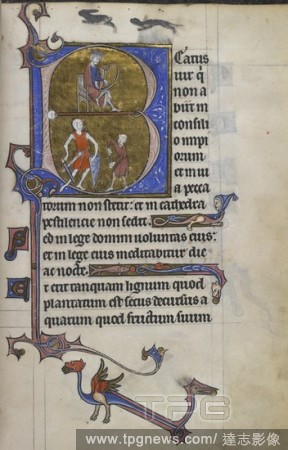 Beatus
uir q̄
non a
biit in
consilio
impi
orum
et in ui
a pecca
torum non stetit: et in cathedra
pestilencie non sedit.
Sed in lege domini uoluntas eius:
et in lege eius meditabitur die
ac nocte.
Et erit tanquam lignum quod
plantatum est secus decursus a
quarum quod fructum suum
TPG
www.tpgnews.com/ 達志影像